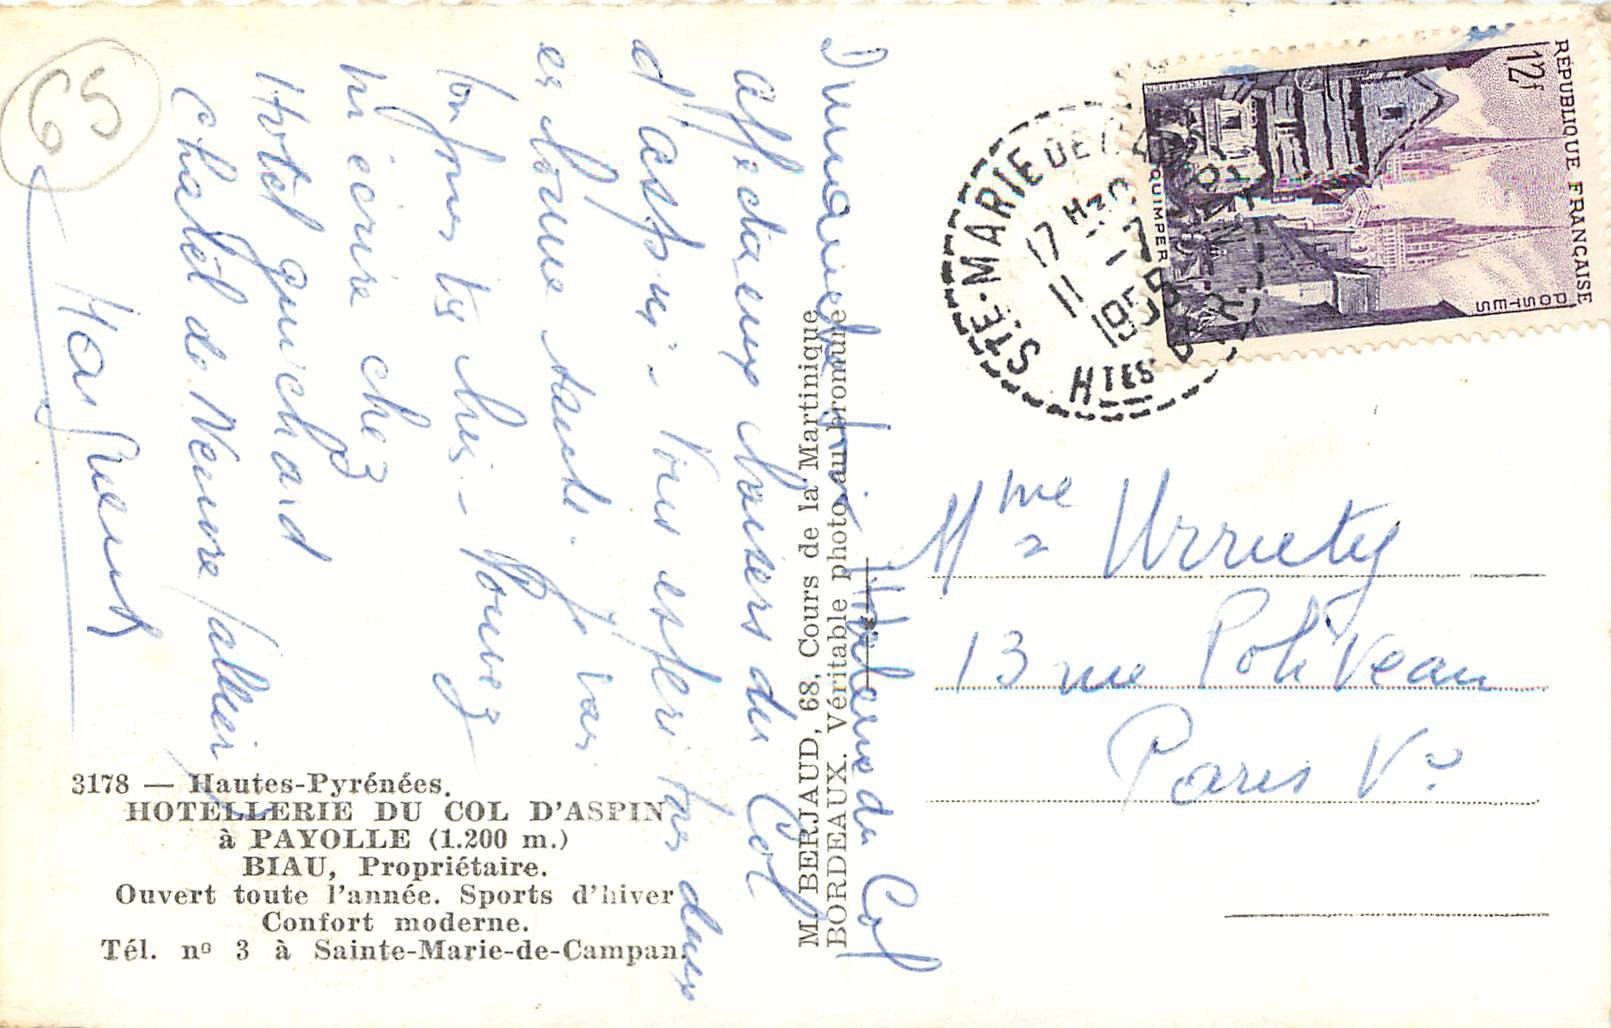 65
Dimanche soir Hôtellerie du Col
affectueux baisers du Col
d'Aspin. Vous espère tous deux
en bonne santé. Je vais
toujours très bien. Pouvez
m'écrire chez
Hotel Guichard
Chatel de Neuvre Allier
Marguerite
3178 — Hautes-Pyrénées.
HOTELLERIE DU COL D'ASPIN
à PAYOLLE (1.200 m.)
BIAU, Propriétaire.
Ouvert toute l'année. Sports d'hiver
Confort moderne.
Tél. nº 3 à Sainte-Marie-de-Campan.
M. BERJAUD, 68, Cours de la Martinique
BORDEAUX. Véritable photo au bromure
STE-MARIE DE CAMPAN
17 H30
11 -7
1955
HTES PYR.
RÉPUBLIQUE FRANÇAISE
POSTES
12f
QUIMPER
Mme Urruty
13 rue Poliveau
Paris Ve